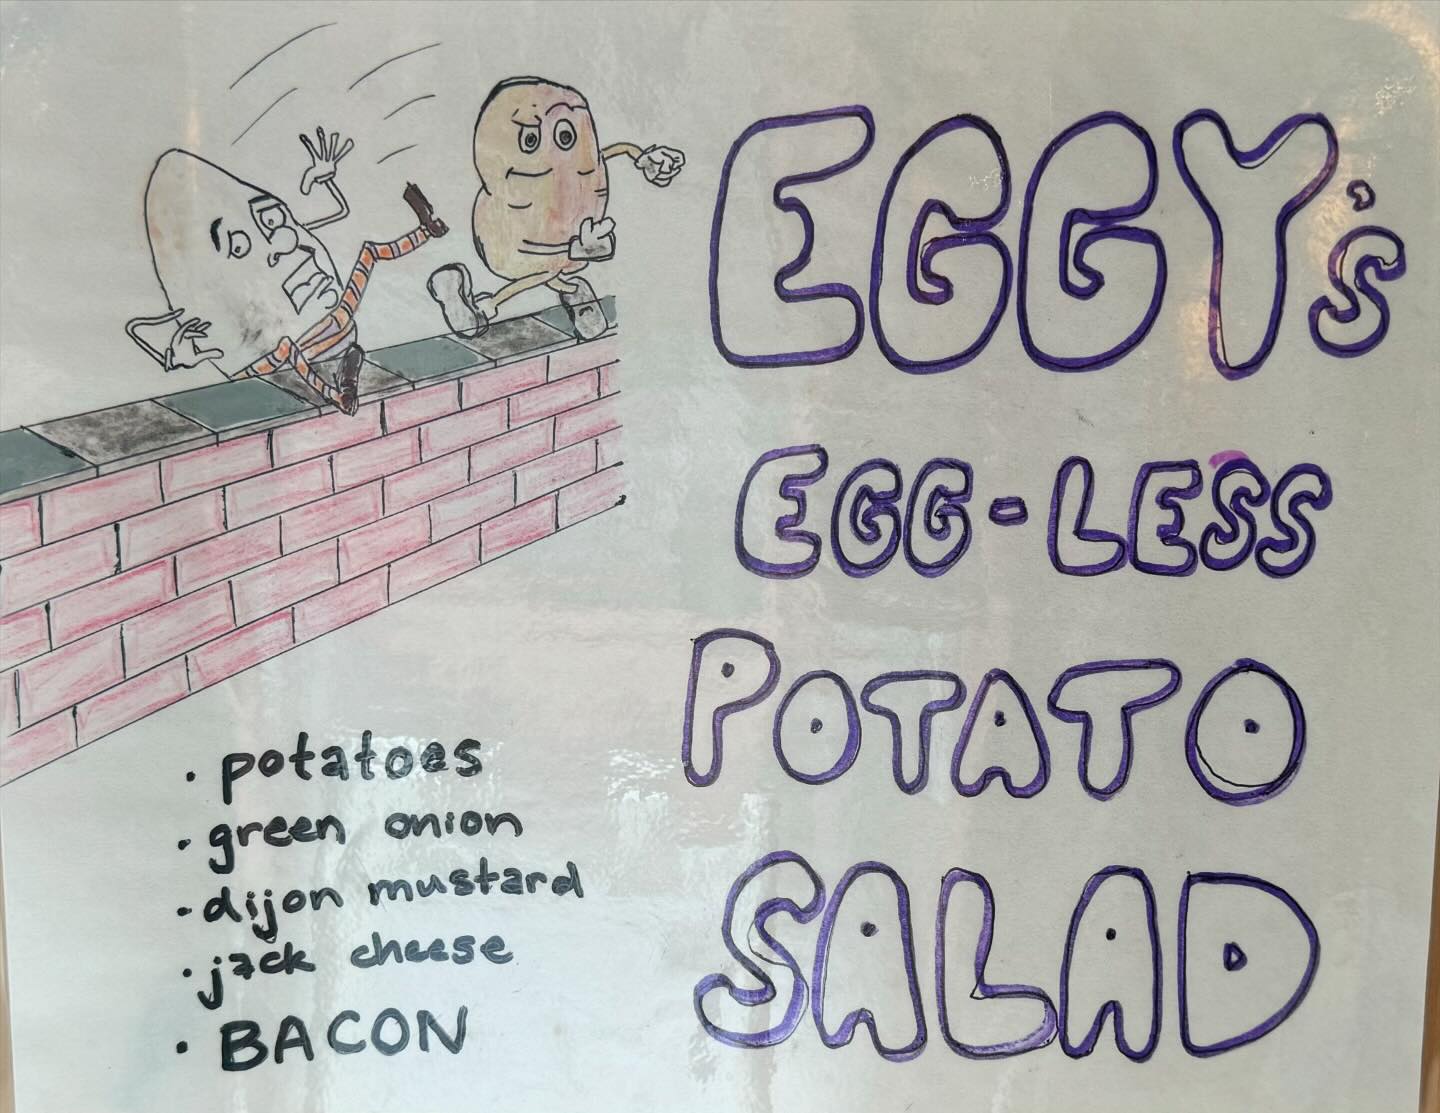 EGGY's
EGG-LESS
POTATO
SALAD
• potatoes
• green onion
• dijon mustard
• jack cheese
• BACON